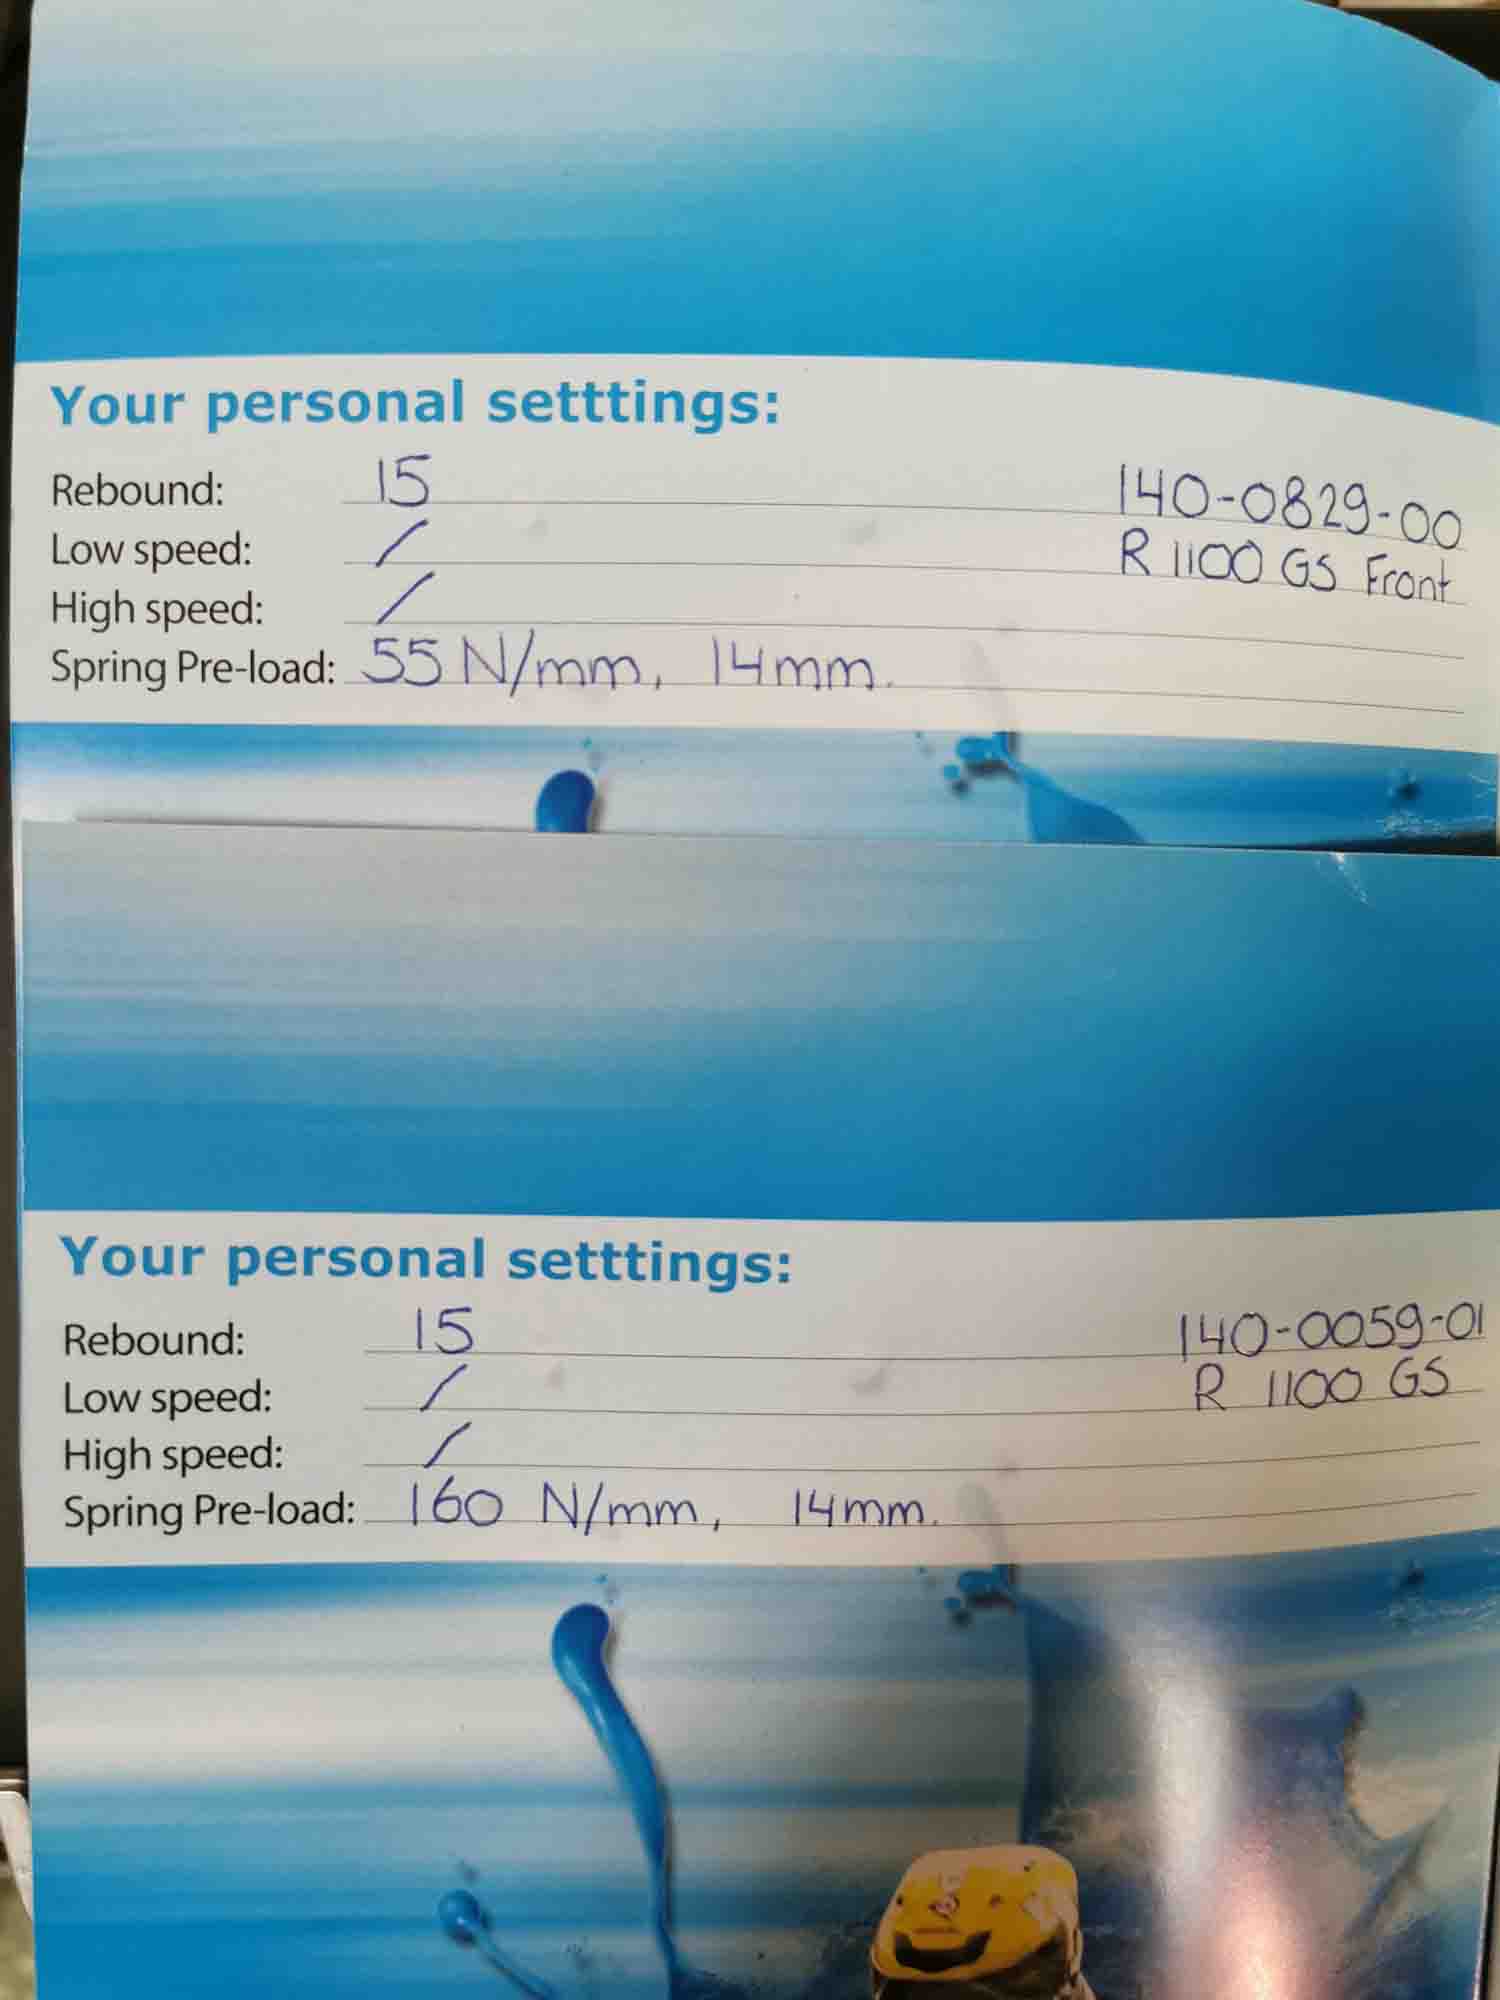 Your personal setttings:
Rebound: 15 140-0829-00
Low speed: / R 1100 GS Front
High speed: /
Spring Pre-load: 55 N/mm, 14mm.
Your personal setttings:
Rebound: 15 140-0059-01
Low speed: / R 1100 GS
High speed: /
Spring Pre-load: 160 N/mm, 14mm.